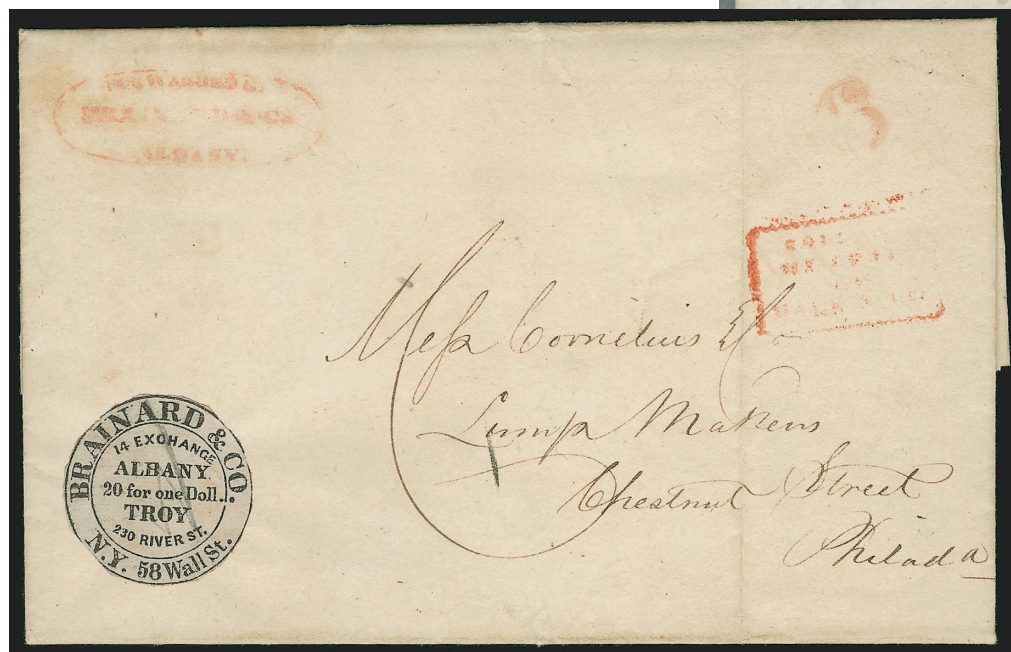 ALBANY.
Mess Cornelius & Co
Lamp Makers
Chestnut Street
Philada
BRAINARD & CO.
14 EXCHANGE
ALBANY.
20 for one Doll..
TROY
230 RIVER ST.
N.Y. 58 Wall St.